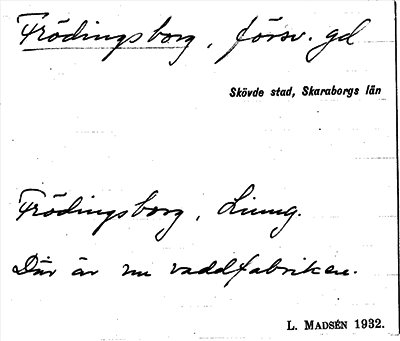 Frödingsborg, försv. gd
Skövde stad, Skaraborgs län
Frödingsborg, Ljung.
Där är nu vaddfabriken.
L. MADSÉN 1932.